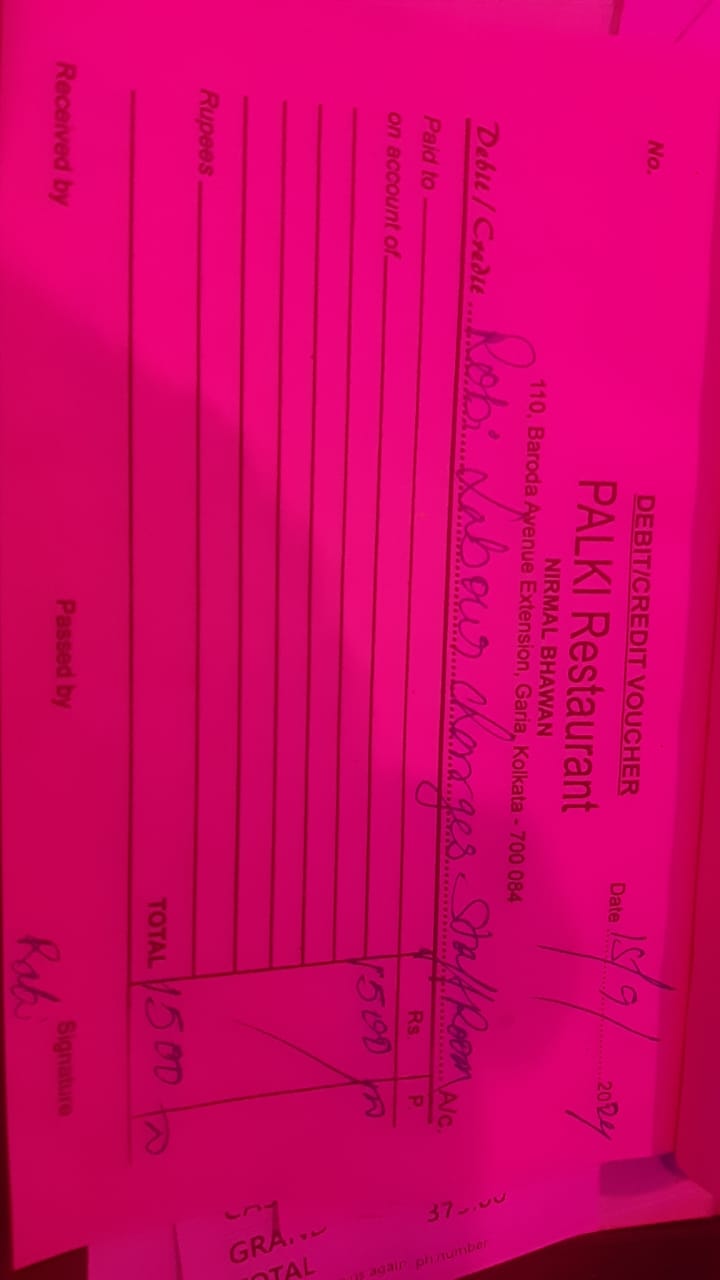 No.
DEBIT/CREDIT VOUCHER
PALKI Restaurant
NIRMAL BHAWAN
110, Baroda Avenue Extension, Garia, Kolkata - 700 084
Date 15/9/2024
Debit / Credit Robi Labour charges Staff Room A/c.
Paid to Rs. P.
on account of
1500
Rupees
TOTAL 1500
Received by Passed by Signature
Rabi
GRAN
OTAL
us again ph.number